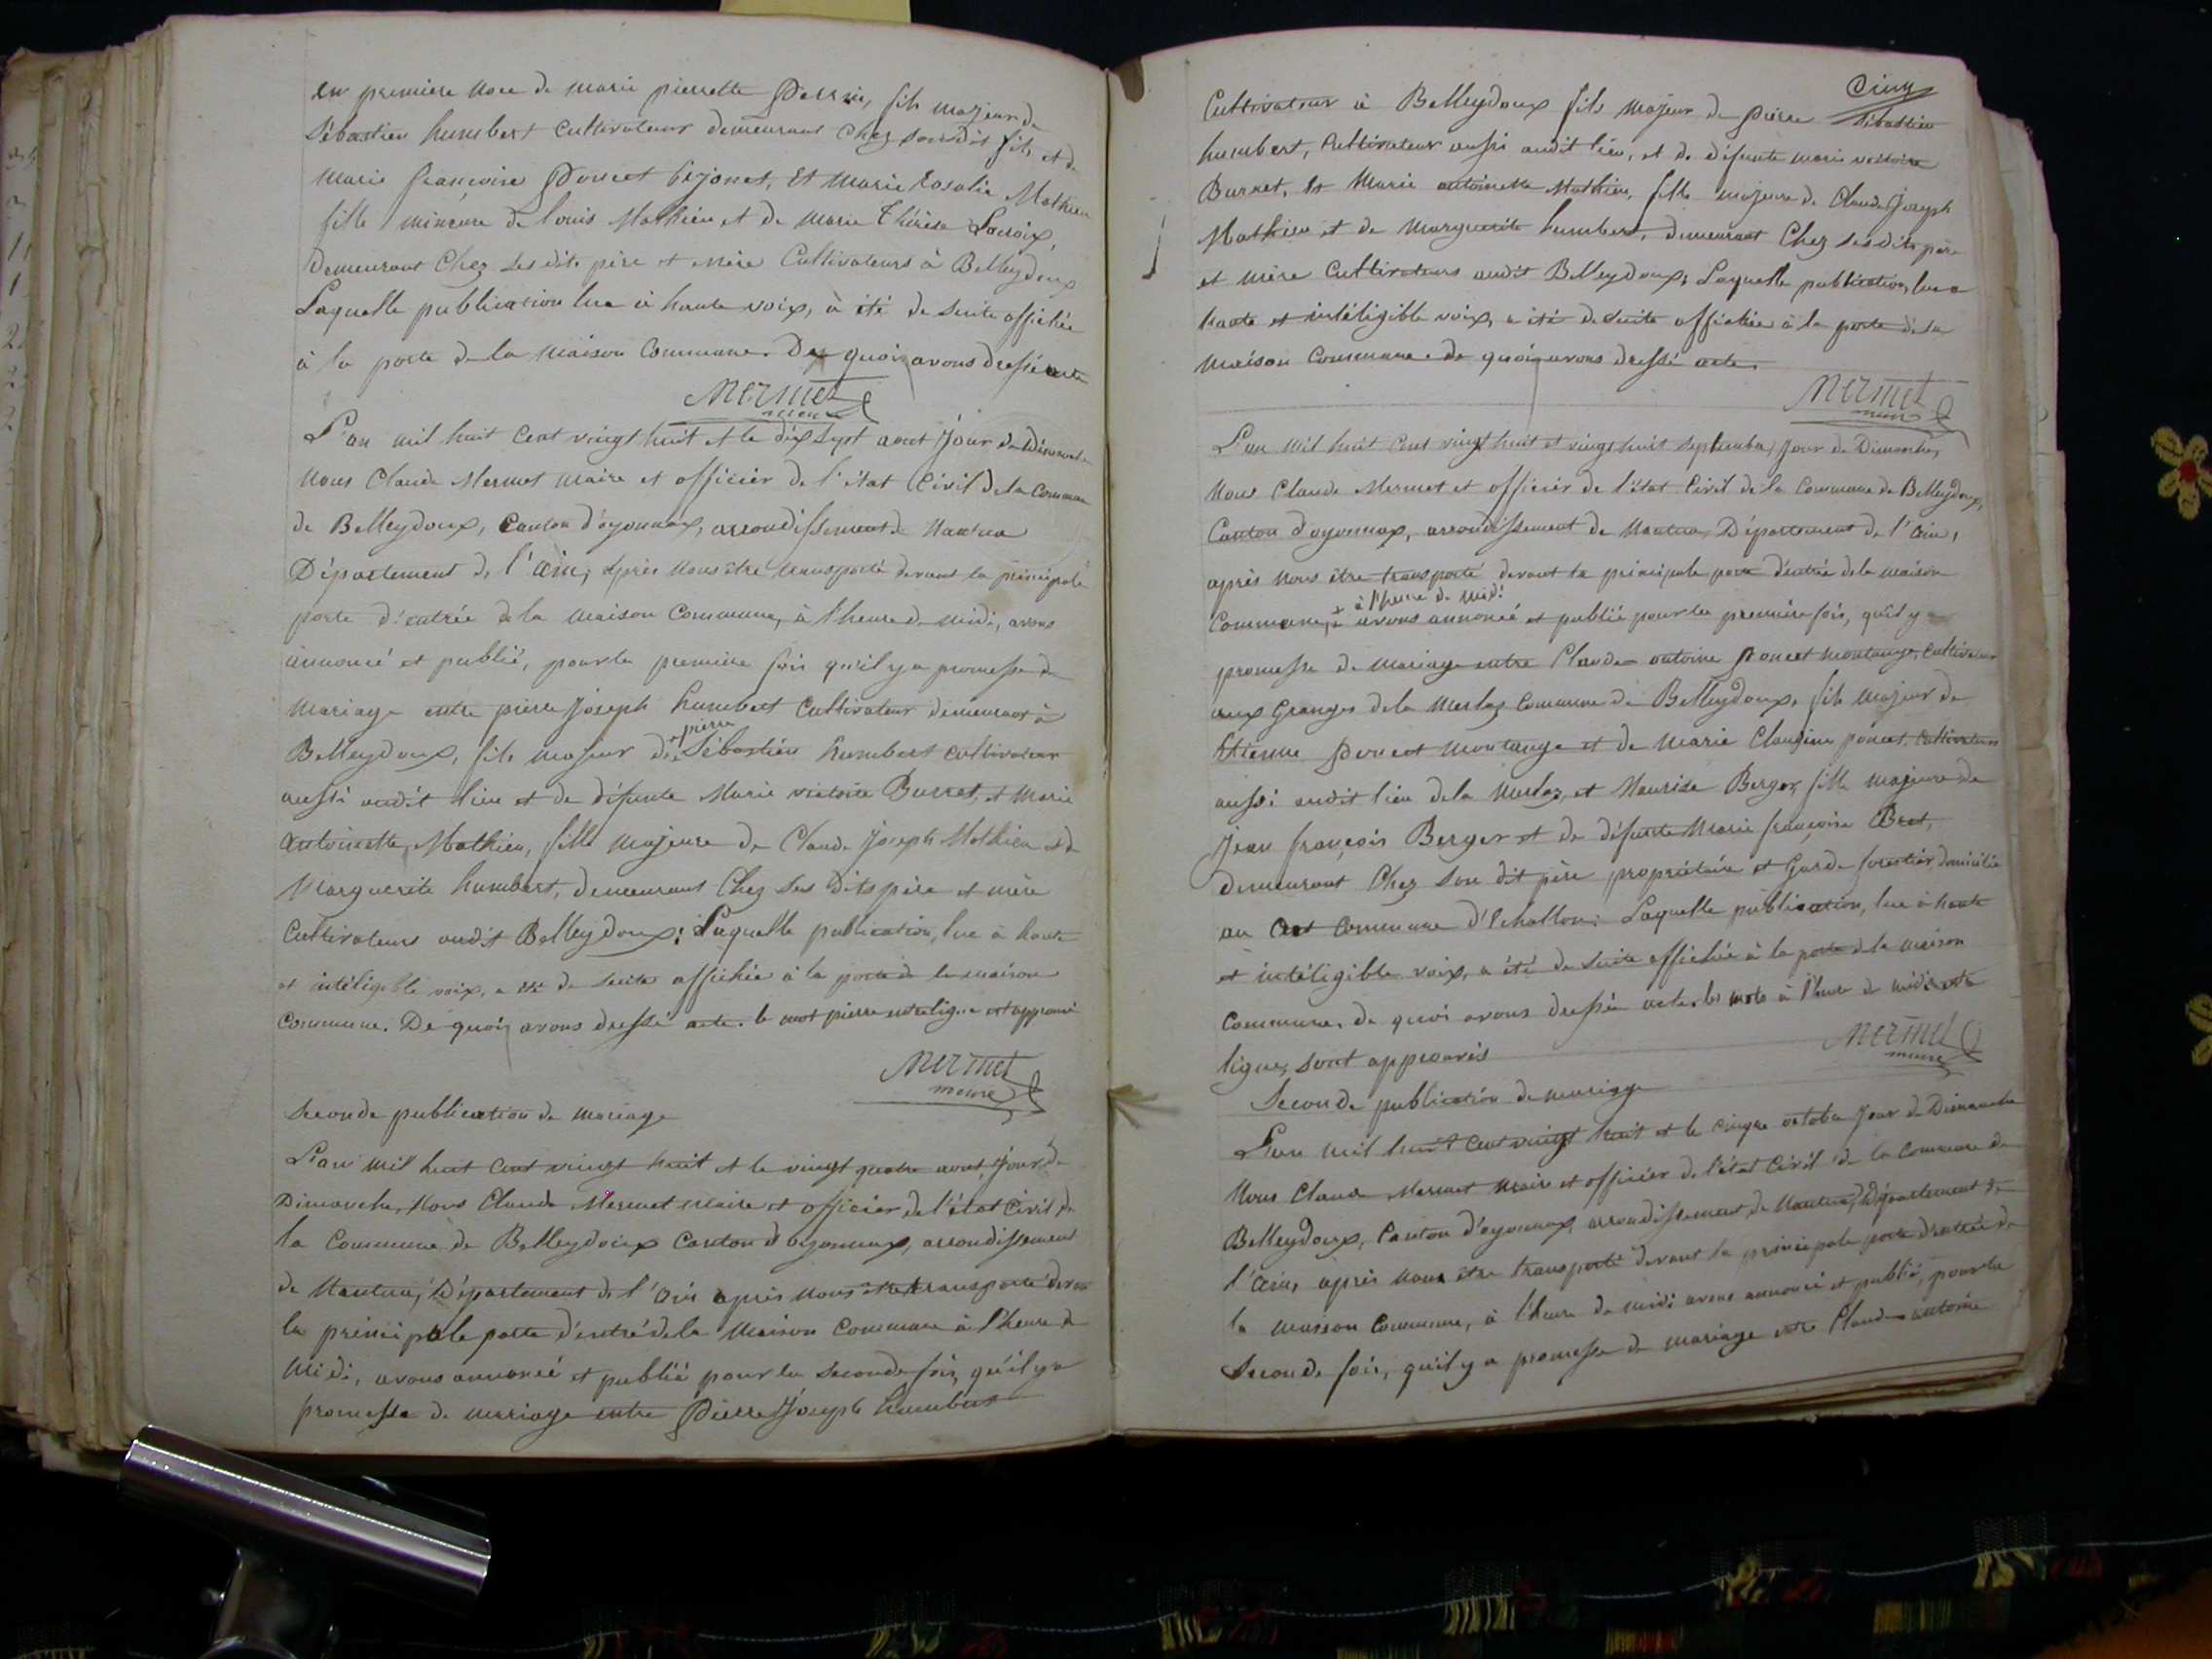 en premiere noce de marie pierrette Perrin, fils majeur de
Sébastien humbert cultivateur demeurant chez son dit fils et de
marie françoise Poncet bejonet, Et Marie Rosalie Mathieu
fille mineure de louis Mathieu et de marie Thérèse Lacroix,
Demeurant Chez ses dits père et mère Cultivateurs à Belleydoux
Laquelle publication lue à haute voix, à été de suite affichée
à la porte de la maison Commune. De quoi avons dressé acte
Mermet
maire
L'an mil huit Cent vingt huit et le dix sept aout Jour de Dimanche
Nous Claude Mermet Maire et officier de l'état Civil de la Commune
de Belleydoux, Canton d'oyonnax, arrondissement de Nantua
Département de l'ain, après Nous être transporté devant la principale
porte d'entrée de la maison Commune, à l'heure de midi, avons
annoncé et publié, pour la premiere fois qu'il y a promesse de
Mariage entre pierre Joseph humbert Cultivateur demeurant à
Belleydoux, fils majeur de + pierre Sébastien humbert cultivateur
aussi audit lieu et de défunte Marie victoire Burret, et Marie
antoinette Mathieu, fille majeure de Claude Joseph Mathieu et de
Marguerite humbert, demeurant Chez ses Dits père et mère
Cultivateurs audit Belleydoux; Laquelle publication, lue à haute
et intéligible voix, a été de suite affichée à la porte de la maison
Commune. De quoi avons dressé acte. le mot pierre entreligne est approuvé
Mermet
maire
Seconde publication de mariage
L'an mil huit Cent vingt huit et le vingt quatre aout, Jour de
Dimanche, Nous Claude Mermet Maire et officier de l'état Civil de
la Commune de Belleydoux Canton d'oyonnax, arrondissement
de Nantua, Département de l'ain après Nous être transporté devant
la principale porte d'entré de la Maison Commune à l'heure de
Midi, avons annoncé et publié pour la seconde fois, qu'il y a
promesse de mariage entre Pierre Joseph humbert
Cinq
Cultivateur à Belleydoux fils majeur de Pierre Sébastien
humbert, Cultivateur aussi audit lieu, et de défunte marie victoire
Burret, Et Marie antoinette Mathieu, fille majeure de Claude Joseph
Mathieu et de Marguerite humbert, demeurant Chez ses dits père
et mère Cultivateurs audit Belleydoux, Laquelle publication, lue a
haute et intéligible voix, a été de suite affichée à la porte de la
Maison Commune. de quoi avons dressé acte.
Mermet
maire
L'an mil huit Cent vingt huit et vingt huit Septembre, Jour de Dimanche,
Nous Claude Mermet et officier de l'état Civil de la Commune de Belleydoux,
Canton d'oyonnax, arrondissement de Nantua, Département de l'ain,
après Nous être transporté devant la principale porte d'entrée de la maison
Commune, + à l'heure de midi avons annoncé et publié pour la première fois, qu'il y a
promesse de Mariage entre Claude antoine Poncet montange, Cultivateur
aux Granges de la Merlaz Commune de Belleydoux, fils majeur de
Etienne Poncet Montange et de Marie Claudine poncet, Cultivateurs
aussi audit lieu de la Merlaz, et Maurise Berger, fille majeure de
Jean françois Berger et de défunte Marie françoise Bret,
Demeurant Chez son dit père propriétaire et Garde forestier, domicilié
au Cret Commune d'Echallon; Laquelle publication, lue à haute
et intéligible voix, a été de suite affichée à la porte de la maison
Commune. de quoi avons dressé acte. les mots à l'heure de midi entre
lignes, sont approuvés
Mermet
maire
Seconde publication de mariage
L'an mil huit Cent vingt huit et le cinque octobre Jour de Dimanche
Nous Claude Mermet Maire et officier de l'état Civil de la Commune de
Belleydoux, Canton d'oyonnax, arrondissement de Nantua, Département de
l'ain, après Nous être transporté devant la principale porte d'entrée de
la maison Commune, à l'heure de midi avons annoncé et publié, pour la
Seconde fois, qu'il y a promesse de mariage entre Claude antoine